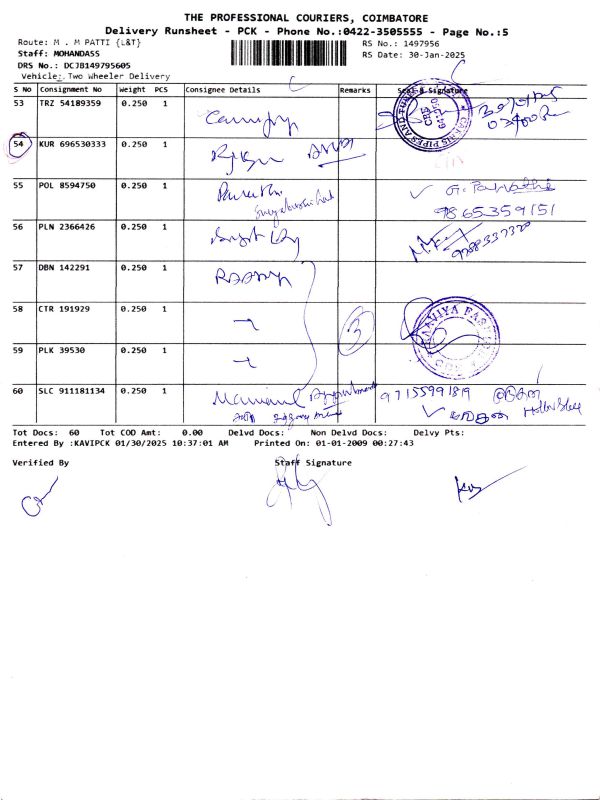 THE PROFESSIONAL COURIERS, COIMBATORE
Delivery Runsheet - PCK - Phone No.:0422-3505555 - Page No.:5
Route: M . M PATTI {L&T} RS No.: 1497956
Staff: MOHANDASS RS Date: 30-Jan-2025
DRS No.: DCJB149795605
Vehicle: Two Wheeler Delivery
S No Consignment No Weight PCS Consignee Details Remarks Seal & Signature
53 TRZ 54189359 0.250 1
54 KUR 696530333 0.250 1
55 POL 8594750 0.250 1 G. Parvathi
9865359151
56 PLN 2366426 0.250 1 9788337320
57 DBN 142291 0.250 1
58 CTR 191929 0.250 1 3
59 PLK 39530 0.250 1
60 SLC 911181134 0.250 1 97155991819
Tot Docs: 60 Tot COD Amt: 0.00 Delvd Docs: Non Delvd Docs: Delvy Pts:
Entered By :KAVIPCK 01/30/2025 10:37:01 AM Printed On: 01-01-2009 00:27:43
Verified By Staff Signature